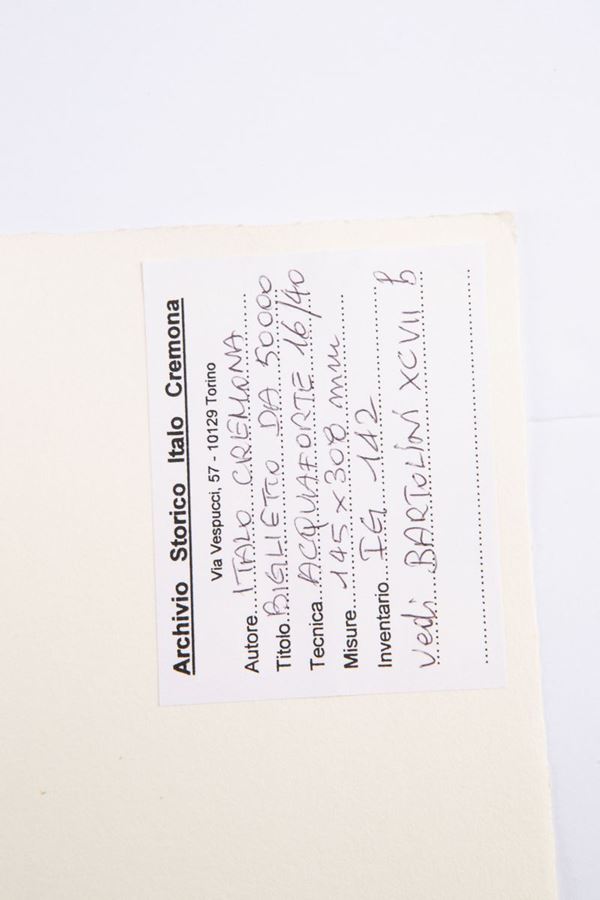 Archivio Storico Italo Cremona
Via Vespucci, 57 - 10129 Torino
Autore ITALO CREMONA
Titolo BIGLIETTO DA 50000
Tecnica ACQUAFORTE 16/40
Misure 145 x 308 mm
Inventario IG 142
vedi BARTOLINI XCVII B